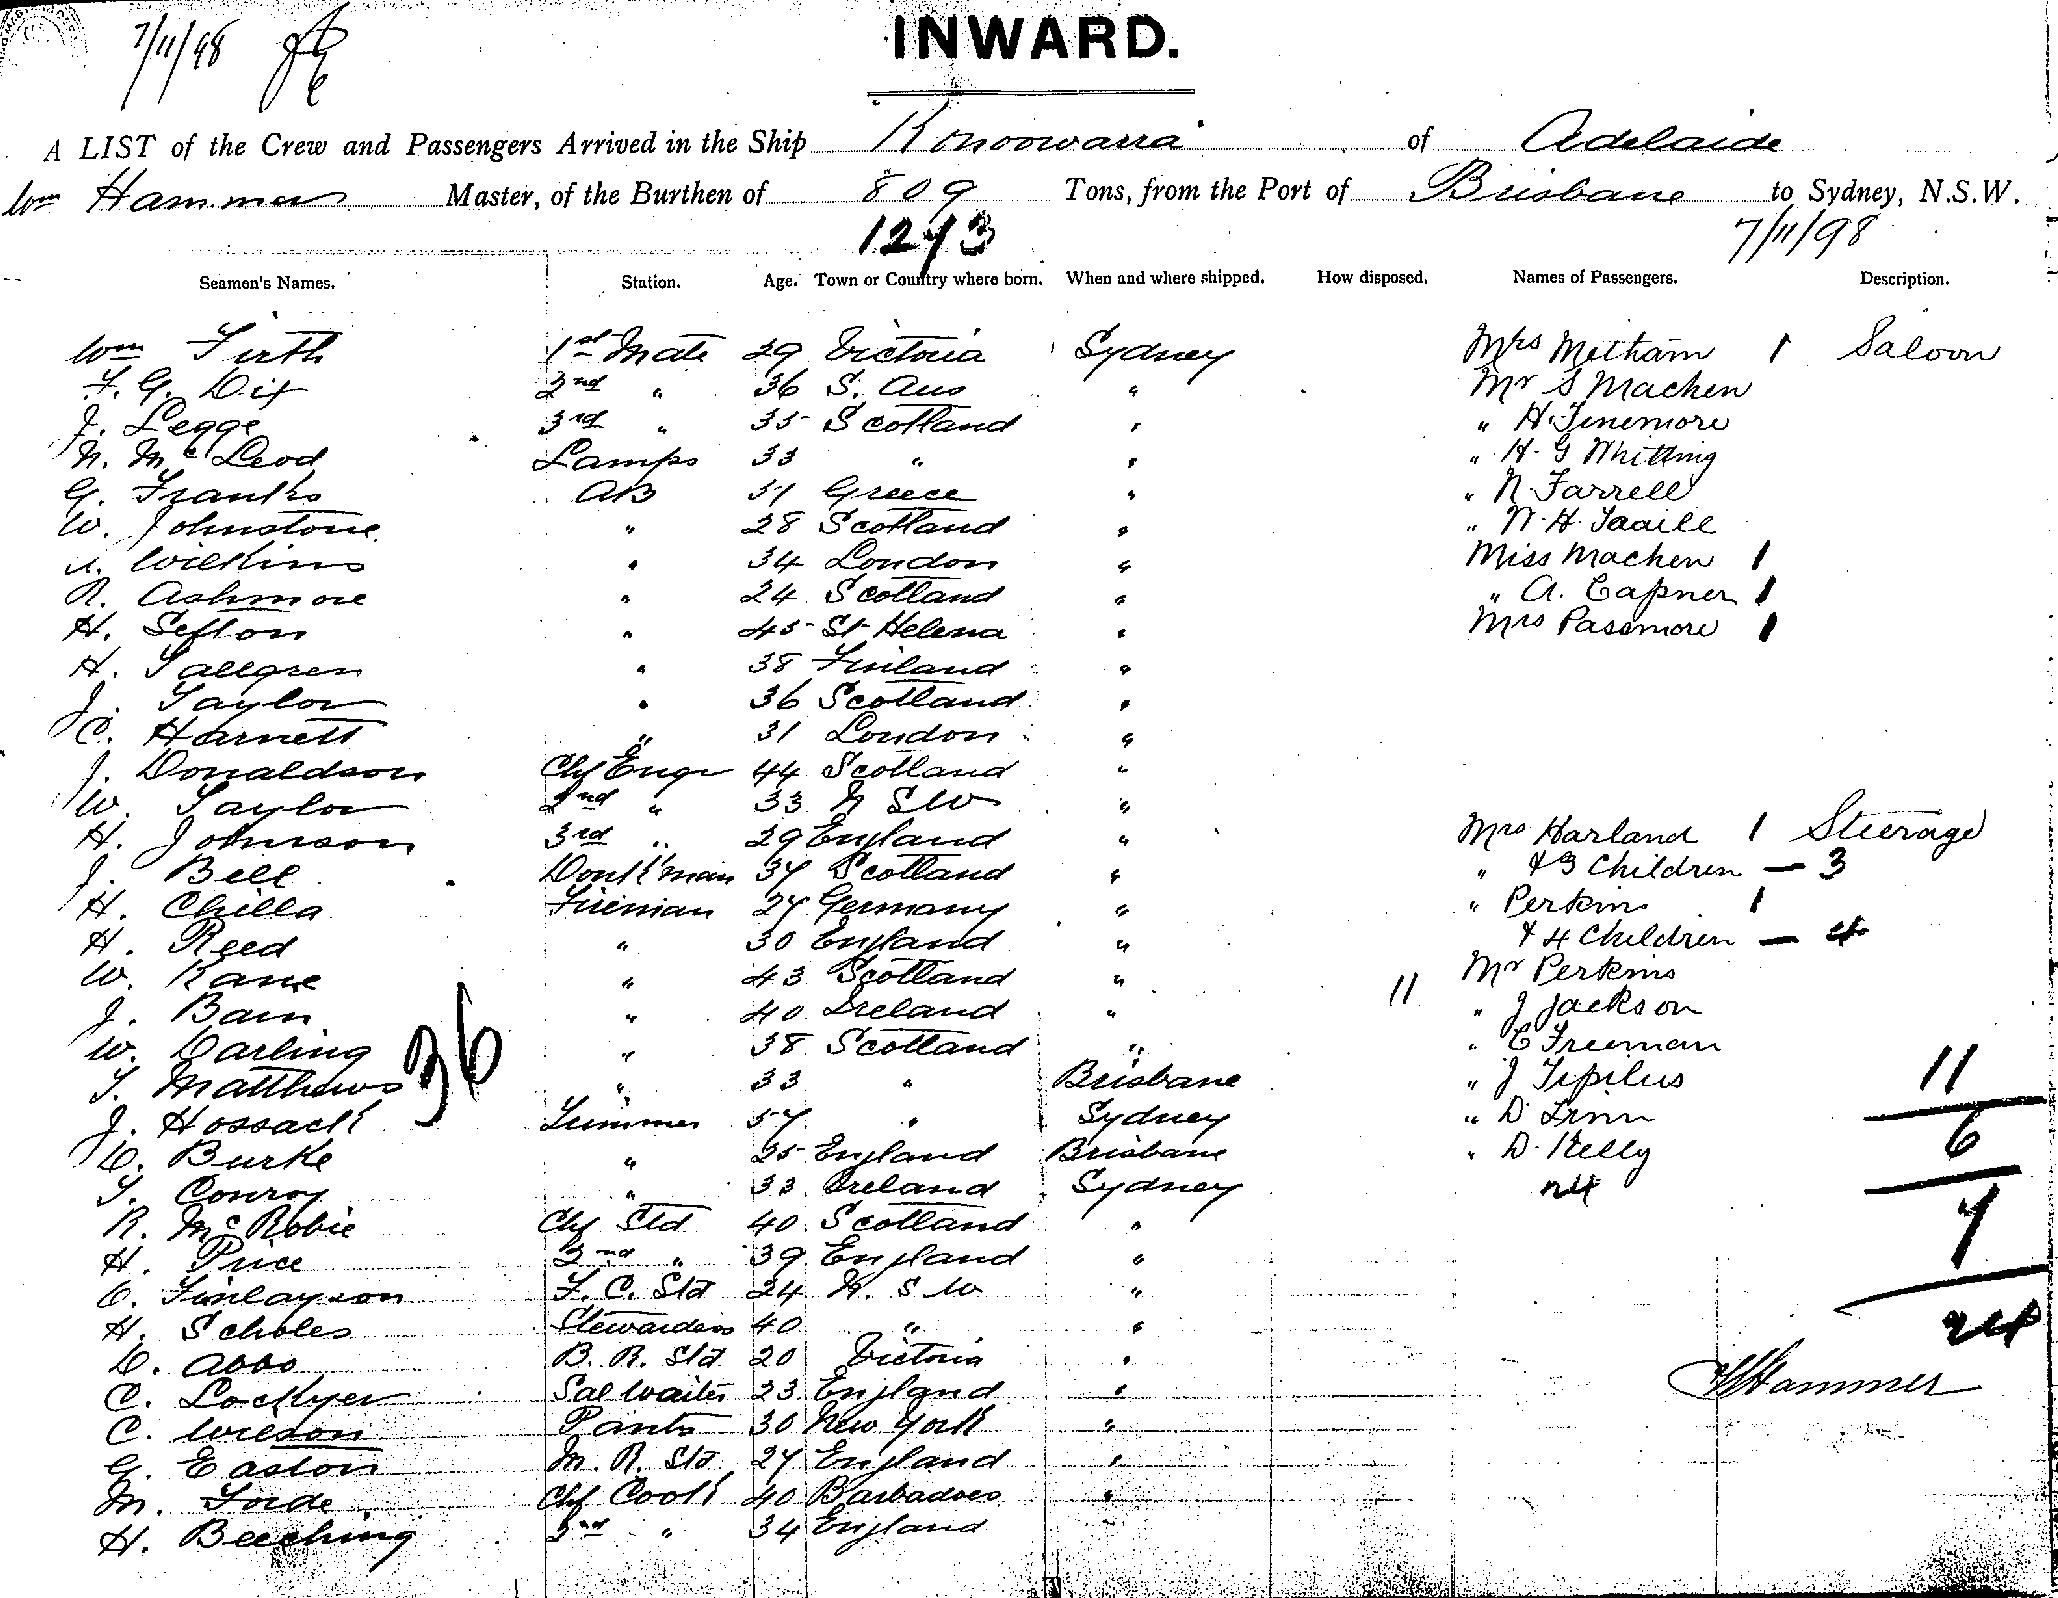 7/11/98
INWARD.
A LIST of the Crew and Passengers Arrived in the Ship Konoowarra of Adelaide
Wm Hammer Master, of the Burthen of 809 Tons, from the Port of Brisbane to Sydney, N.S.W.
1273 7/11/98
Seamen's Names. Station. Age. Town or Country where born. When and where shipped. How disposed. Names of Passengers. Description.
Wm Firth 1st Mate 29 Victoria Sydney Mrs Metham 1 Saloon
F. G. Dix 2nd " 36 S. Aus " Mr S Machen
J. Legge 3rd " 35 Scotland " " H. Tinemore
N. McLeod Lamps 33 " " " H. G Whitting
G. Franks AB 31 Greece " " N. Farrell
W. Johnstone " 28 Scotland " " W. H.
Wilkins " 34 London " Miss Machen 1
R. Ashmore " 24 Scotland " " A. Capner 1
H. Sefton " 45 St Helena " Mrs Passmore 1
H. Tallgren " 38 Finland "
J. Taylor " 36 Scotland "
C. Harnett " 31 London "
J. Donaldson Chf Engr 44 Scotland "
W. Taylor 2nd " 33 N S W "
H. Johnson 3rd " 29 England " Mrs Harland 1 Steerage
J. Bell Donk'man 37 Scotland " " & 3 Children — 3
H. Chilla Fireman 27 Germany " " Perkins 1
H. Reed " 30 England " & 4 Children — 4
W. Kane " 43 Scotland " Mr Perkins
J. Bain " 40 Ireland " 11 " J Jackson
W. Darling 36 " 38 Scotland " " C Freeman
T. Matthews " 33 " Brisbane " J 11
J. Hossack Trimmer 57 " Sydney " D.
D. Burke " 25 England Brisbane " D. Kelly 6
T. Conroy " 33 Ireland Sydney 24
R. McRobie Chf Std 40 Scotland " 7
H. Price 2nd " 39 England "
C. Finlayson F. C. Std 24 N. S W "
H. Scholes Stewardess 40 " " 24
D. Abbs B. R. Std 20 Victoria " Hammer
C. Lockyer Sal Waiter 23 England "
C. Wilson Pantry 30 New York "
G. Easton M. R. Std 27 England "
M. Forde Chf Cook 40 Barbadoes "
H. Beeching 2nd " 34 England